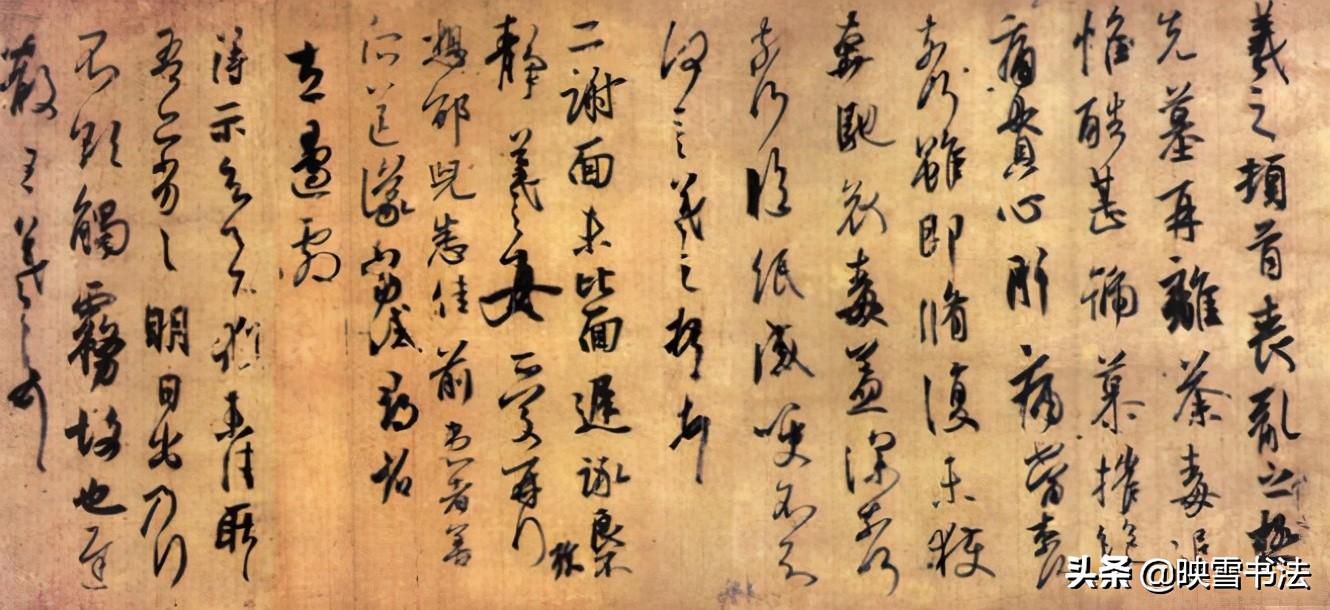 羲之頓首喪亂之極
先墓再離荼毒追
惟酷甚號慕摧絕
痛貫心肝痛當奈何
奈何雖即脩復未獲
奔馳哀毒益深奈何
奈何臨紙感哽不知
何言羲之頓首頓首
二謝面未比面遲詠良不
靜羲之女愛再拜
想邵兒悉佳前患者善
所送議當試尋省
左邊劇
得示知足下猶未佳耿耿
吾亦劣劣明日出乃行
不欲觸霧故也遲
散王羲之頓首
头条 @映雪书法